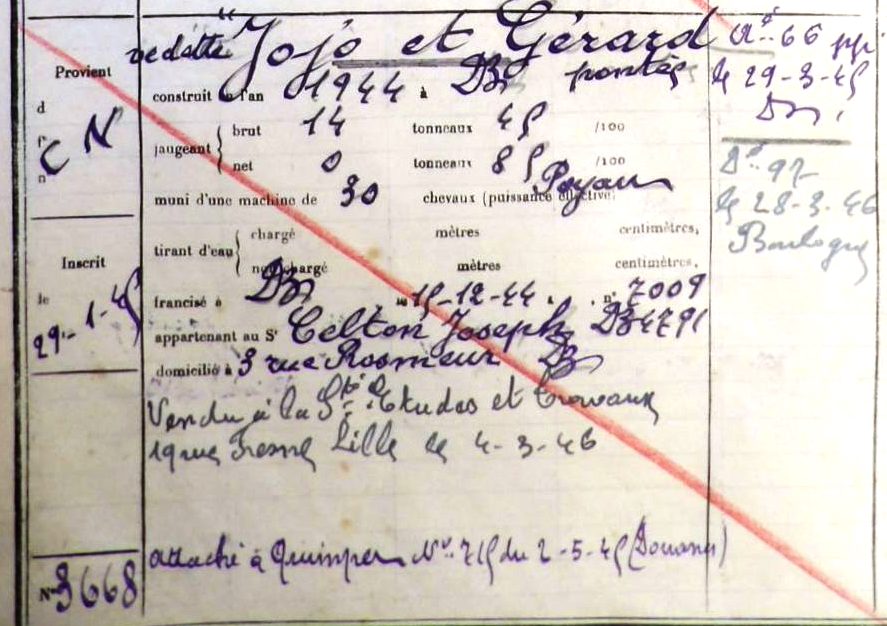 vedette "Jojo et Gérard
pontée
construit en l'an 1944 à Dz
Provient
d
C N
jaugeant { brut 14 tonneaux 45 /100
net 0 tonneaux 85 /100
muni d'une machine de 30 chevaux (puissance effective)
tirant d'eau { chargé mètres centimètres,
non chargé mètres centimètres,
Inscrit
le
29-1-45
francisé à Dz le 15-12-44 n° 7009
appartenant au Sr Celton Joseph Dz 4791
domicilié à 3 rue Rosmeur Dz
Vendu à la Sté Etudes et Travaux
19 rue Lille le 4-3-46
attaché à Quimper N° 715 du 2-5-45 (Douanes)
N° 3668
66
le 29-3-45
Dz
97
le 28-3-46
Boulogne